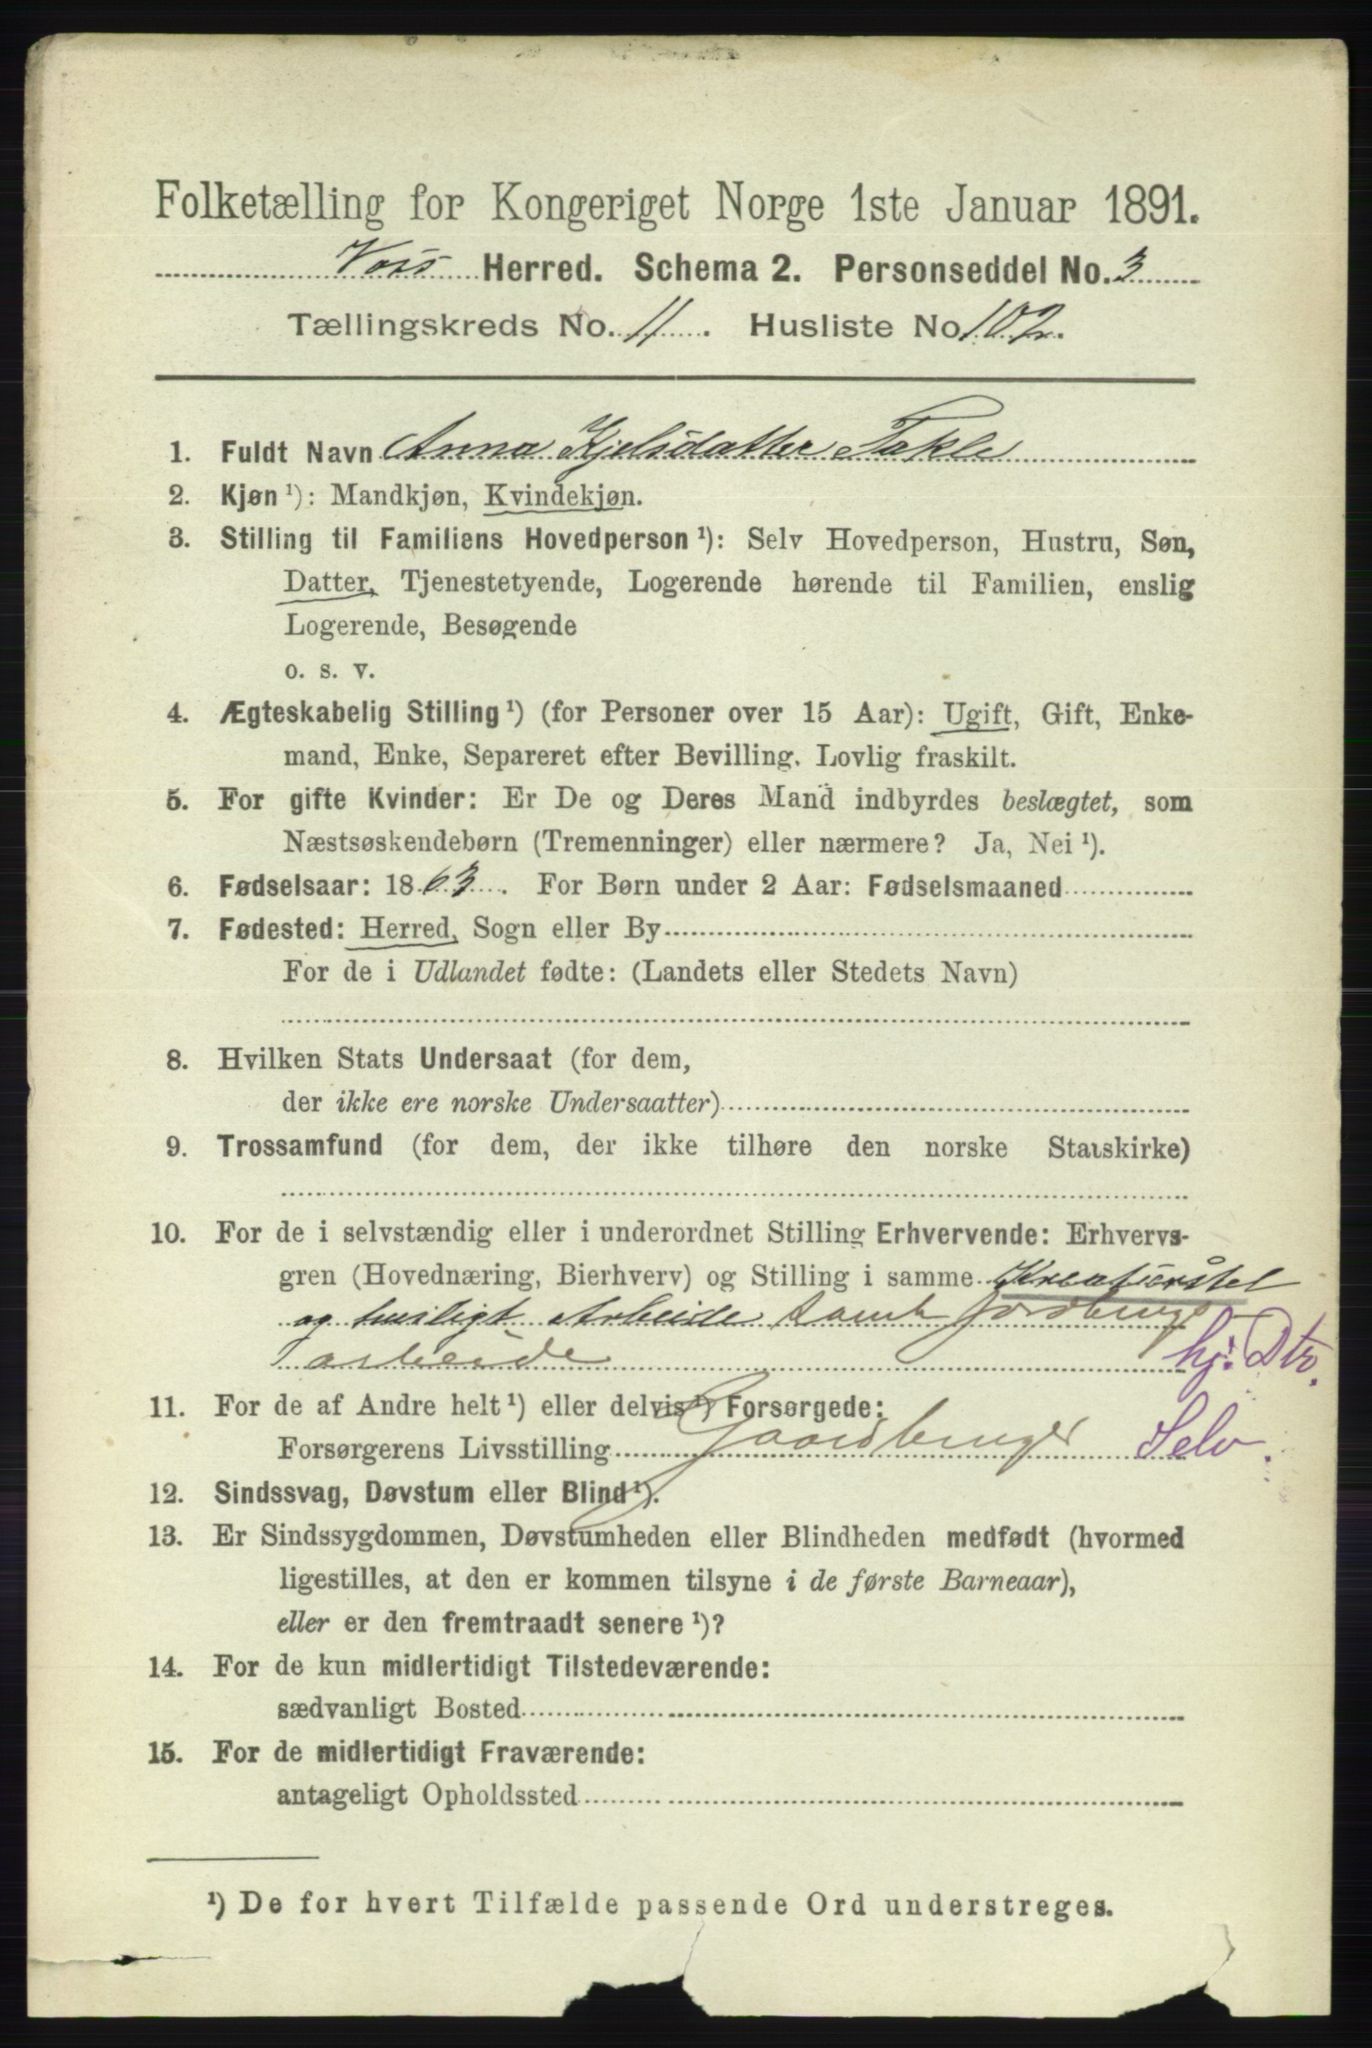 Folketælling for Kongeriget Norge 1ste Januar 1891.
Voss Herred. Schema 2. Personseddel No. 3
Tællingskreds No. 11. Husliste No 102.
1. Fuldt Navn Anna Kjelsdatter Takle
2. Kjøn ¹): Mandkjøn, Kvindekjøn.
3. Stilling til Familiens Hovedperson ¹): Selv Hovedperson, Hustru, Søn,
Datter, Tjenestetyende, Logerende hørende til Familien, enslig
Logerende, Besøgende
o. s. v.
4. Ægteskabelig Stilling ¹) (for Personer over 15 Aar): Ugift, Gift, Enke-
mand, Enke, Separeret efter Bevilling. Lovlig fraskilt.
5. For gifte Kvinder: Er De og Deres Mand indbyrdes beslægtet, som
Næstsøskendebørn (Tremenninger) eller nærmere? Ja, Nei ¹).
6. Fødselsaar: 1863. For Børn under 2 Aar: Fødselsmaaned
7. Fødested: Herred, Sogn eller By
For de i Udlandet fødte: (Landets eller Stedets Navn)
8. Hvilken Stats Undersaat (for dem,
der ikke ere norske Undersaatter)
9. Trossamfund (for dem, der ikke tilhøre den norske Statskirke)
10. For de i selvstændig eller i underordnet Stilling Erhvervende: Erhvervs-
gren (Hovednæring, Bierhverv) og Stilling i samme Kreaturstel
og husligt Arbeide samt jordbrugs
arbeide hj. Dtr.
11. For de af Andre helt ¹) eller delvis ¹) Forsørgede:
Forsørgerens Livsstilling Gaardbruger Selv.
12. Sindssvag, Døvstum eller Blind ¹).
13. Er Sindssygdommen, Døvstumheden eller Blindheden medfødt (hvormed
ligestilles, at den er kommen tilsyne i de første Barneaar),
eller er den fremtraadt senere ¹)?
14. For de kun midlertidigt Tilstedeværende:
sædvanligt Bosted
15. For de midlertidigt Fraværende:
antageligt Opholdssted
¹) De for hvert Tilfælde passende Ord understreges.